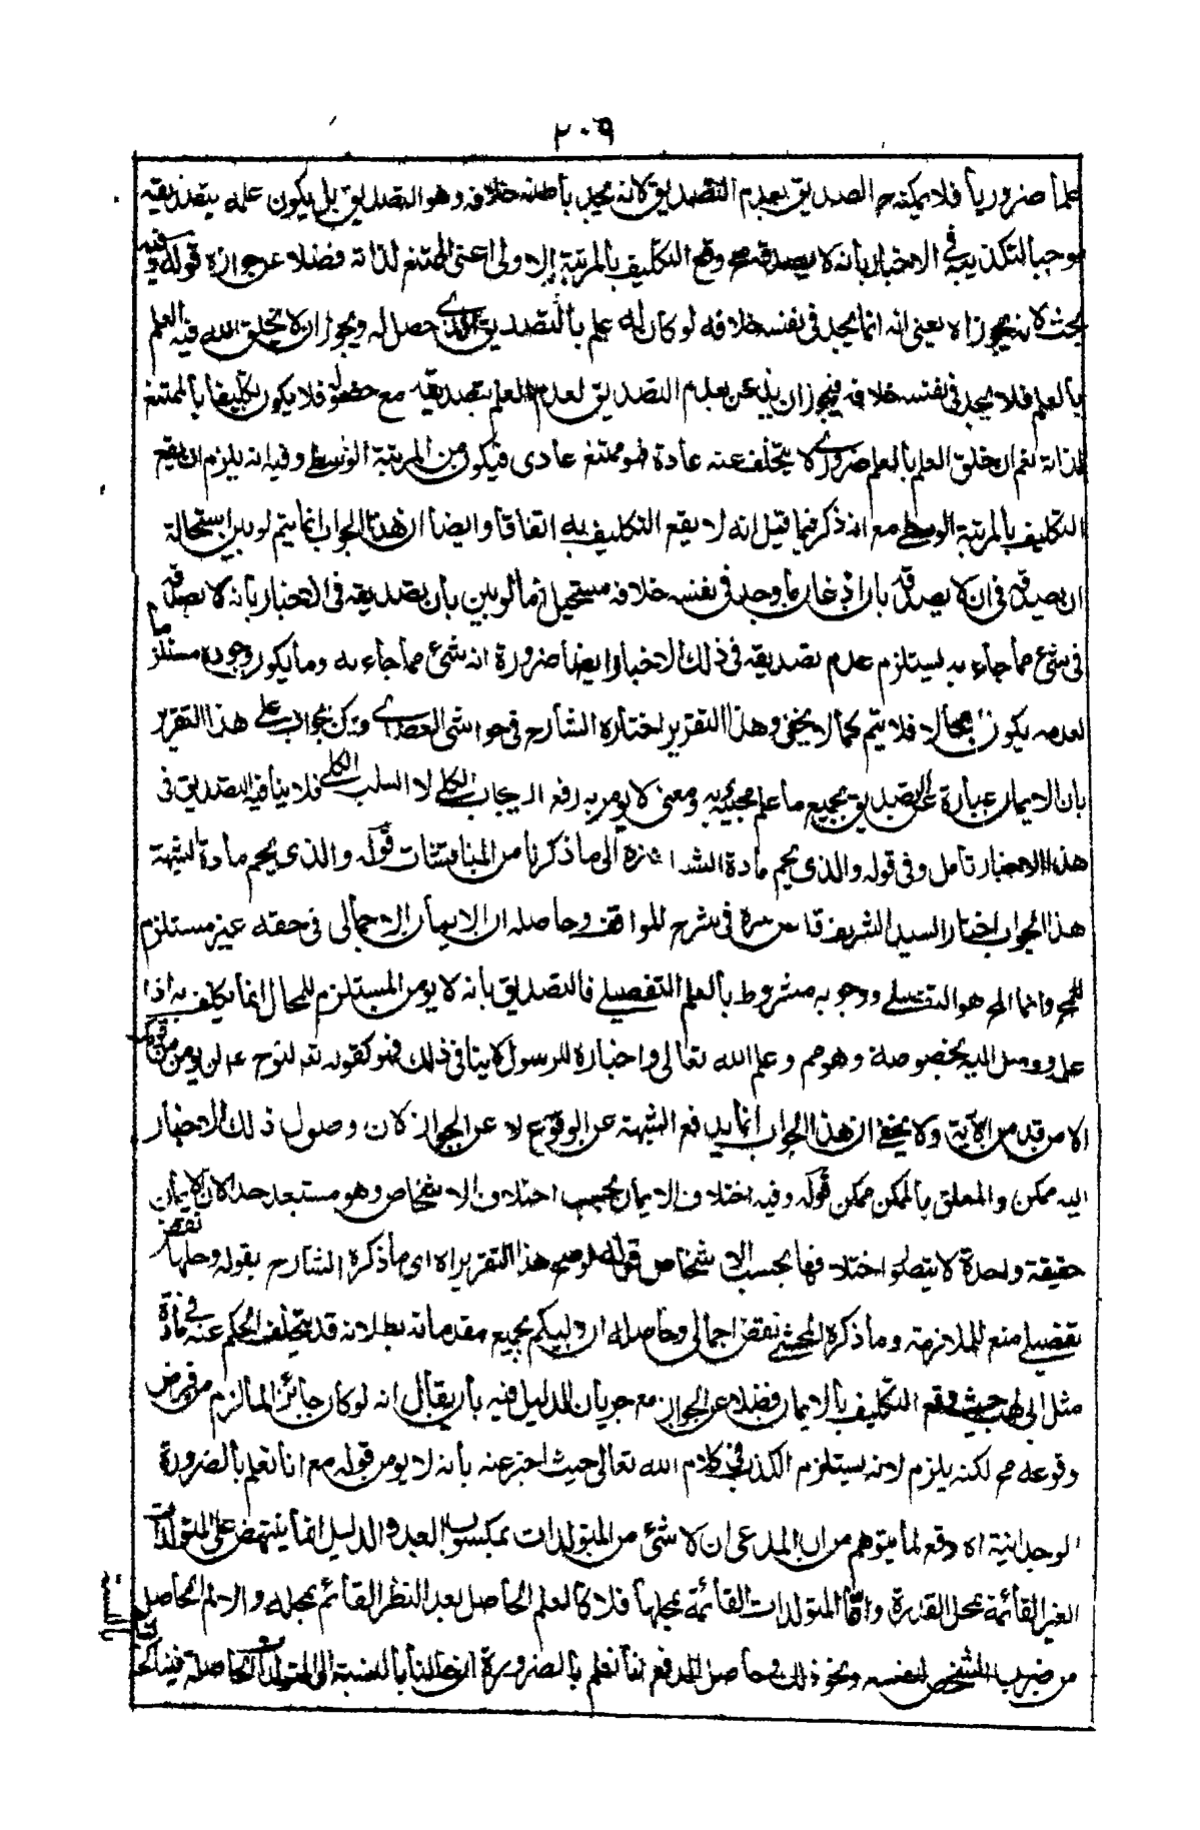 ٢٠٩
علما ضروريا فلا يمكنه ح الصديق بعدم التصديق لانه يجد بأطنه خلافه وهو التصديق بل يكون علمه بتصديقه
موجبا لتكذيبه في الاخبار بأنه لا يصدقه وقع التكليف بالمرتبة الاولى اعنى الممتنع لذاته فضلا عن جوازه قوله وفيه
بحث لانه يجوز اه يعنى انه انما يجد في نفسه خلافه لو كان له علم بالتصديق الذى حصل له ويجوز ان لا يخلق الله فيه العلم
بألعلم فلا يجد في نفسه خلافه فيجوز ان يذعن بعدم التصديق لعدم العلم بتصديقه مع حصوله فلا يكون تكليفا بألممتنع
لذاته نعم ان خلق العلم بألعلم ضرورى لا يتخلف عنه عادة فهو ممتنع عادى فيكون من المرتبة الوسطى وفيه انه يلزم ان يقع
التكليف بألمرتبة الوسطى مع انه ذكر فيما قبل انه لا يقع التكليف به اتفاقا وايضا ان هذا الجواب انما يتم لو بين استحالة
ان يصدقه في ان لا يصدقه بان اذعان ما وجد في نفسه خلافه مستحيل اما لو بين بأن تصديقه في الاخبار بأنه لا يصدقه
في شئ مما جاء به يستلزم عدم تصديقه في ذلك الاخبار وايضا ضرورة انه شئ مما جاء به وما يكون وجوده مستلزما
لعدمه يكون محالا فلا يتم كما لا يخفى وهذا التقرير اختاره الشارح في حواشى العضدى ويمكن الجواب على هذا التقرير
بان الايمان عبارة عن التصديق بجميع ما علم مجيئه به ومعنى لا يومن به رفع الايجاب الكلى لا السلب الكلى فلا ينأفيه التصديق في
هذا الاخبار تأمل وفي قوله والذى يحم مادة الشبهة اشارة الى ما ذكرنا من المناقشات قوله والذى يحم مادة الشبهة
هذا الجواب اختاره السيد الشريف قدس سره في شرح المواقف وحاصله ان الايمان الاجمالى في حقه غير مستلزم
للمحال وانما المح هو التفصيلى ووجوبه مشروط بألعلم التفصيلى فألتصديق بأنه لا يومن المستلزم للمحال انما يكلف به اذا
علم ووصل اليه بخصوصه وهو مم وعلم الله تعالى واخباره للرسول لا ينافى ذلك فهو كقوله تع لنوح عم لن يومن من قومك
الا من قد من الآية ولا يخفى ان هذا الجواب انما يدفع الشبهة عن الوقوع لا عن الجواز لان وصول ذلك الاخبار
اليه ممكن والمعلق بألممكن ممكن قوله وفيه اختلاف الايمان بحسب اختلاف الاشخاص وهو مستبعد جدا لان الايمان
حقيقة واحدة لا يتصور اختلافها بحسب الاشخاص قوله لو صح هذا التقرير اه اى ما ذكره الشارح بقوله وحلها نقض
تفصيلى منع للملازمة وما ذكره المحشى نقض اجمالى وحاصله ان دليلكم بجميع مقدماته بط لانه قد يتخلف الحكم عنه في مادة
مثل ابى لهب حيث وقع التكليف بألايمان فضلا عن الجواز مع جريان الدليل فيه بأن يقال انه لو كان جائزا لما لزم من فرض
وقوعه مح لكنه يلزم لانه يستلزم الكذب في كلام الله تعالى حيث اخبر عنه بأنه لا يومن قوله مع انا نعلم بألضرورة
الوجدانية اه دفع لما يتوهم من ان المدعى ان لا شئ من المتولدات بمكسوب العبد والدليل انما ينتهض على المتولدات
الغير القائمة بمحل القدرة واما المتولدات القائمة بمحلها فلا كالعلم الحاصل بعد النظر القائم بمحله والالم الحاصل
من ضرب الشخص لنفسه ونحو ذلك وحاصل الدفع انا نعلم بألضرورة ان حالنا بألنسبة الى المتولدات الحاصلة فينا كحا
لنا بالنسبة